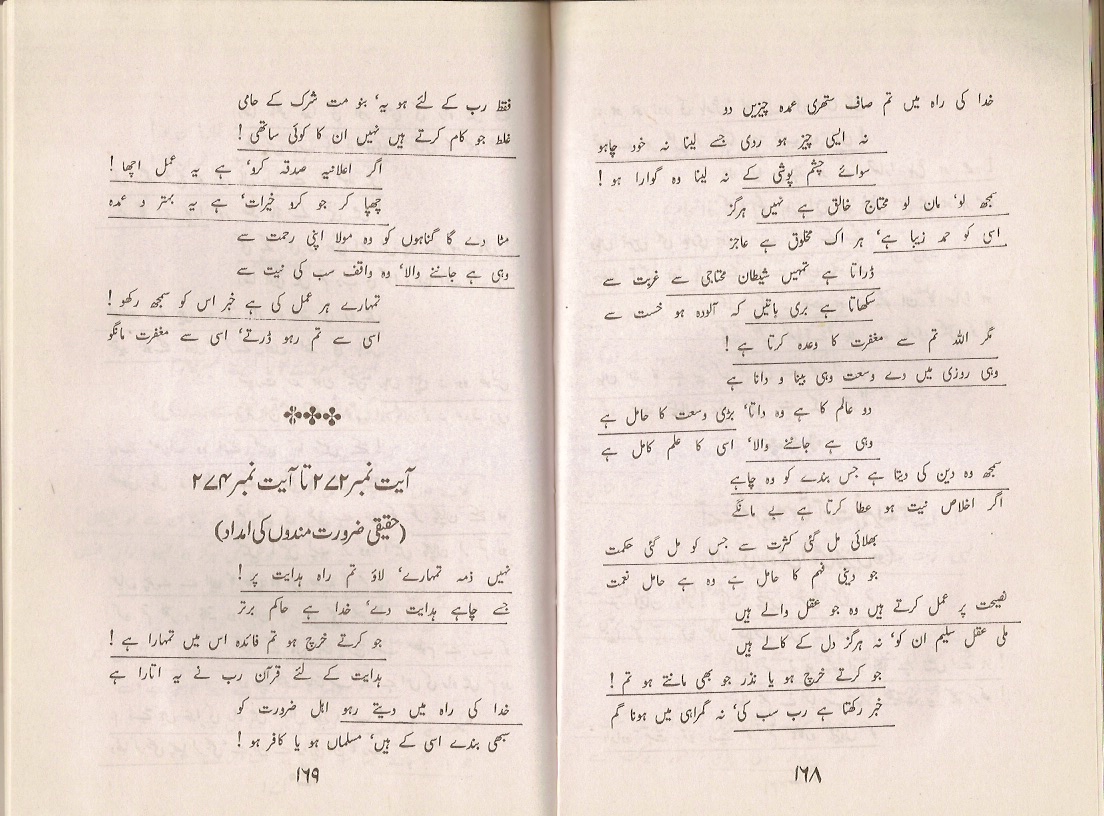 خدا کی راہ میں تم صاف ستھری عمدہ چیزیں دو
نہ ایسی چیز ہو ردی جسے لینا نہ خود چاہو
سوائے چشم پوشی کے نہ لینا وہ گوارا ہو !
سمجھ لو' مان لو محتاج خالق ہے نہیں ہرگز
اسی کو حمد زیبا ہے' ہر اک مخلوق ہے عاجز
ڈراتا ہے تمہیں شیطان محتاجی سے غربت سے
سکھاتا ہے بری باتیں کہ آلودہ ہو خست سے
مگر اللہ تم سے مغفرت کا وعدہ کرتا ہے !
وہی روزی میں دے وسعت وہی بینا و دانا ہے
دو عالم کا ہے وہ داتا' بڑی وسعت کا حامل ہے
وہی ہے جاننے والا' اسی کا علم کامل ہے
سمجھ وہ دین کی دیتا ہے جس بندے کو وہ چاہے
اگر اخلاص نیت ہو عطا کرتا ہے بے مانگے
بھلائی مل گئی کثرت سے جس کو مل گئی حکمت
جو دینی فہم کا حامل ہے وہ ہے حامل نعمت
نصیحت پر عمل کرتے ہیں وہ جو عقل والے ہیں
ملی عقل سلیم ان کو' نہ ہرگز دل کے کالے ہیں
جو کرتے خرچ ہو یا نذر جو بھی مانتے ہو تم !
خبر رکھتا ہے رب سب کی' نہ گمراہی میں ہونا گم
۱۶۸
فقط رب کے لئے ہو یہ' بنو مت شرک کے حامی
غلط جو کام کرتے ہیں نہیں ان کا کوئی ساتھی !
اگر اعلانیہ صدقہ کرو' ہے یہ عمل اچھا !
چھپا کر جو کرو خیرات' ہے یہ بہتر و عمدہ
مٹا دے گا گناہوں کو وہ مولا اپنی رحمت سے
وہی ہے جاننے والا' وہ واقف سب کی نیت سے
تمہارے ہر عمل کی ہے خبر اس کو سمجھ رکھو !
اسی سے تم رہو ڈرتے' اسی سے مغفرت مانگو
آیت نمبر ۲۷۲ تا آیت نمبر ۲۷۴
(حقیقی ضرورت مندوں کی امداد)
نہیں ذمہ تمہارے' لاؤ تم راہ ہدایت پر !
جسے چاہے ہدایت دے' خدا ہے حاکم برتر
جو کرتے خرچ ہو تم فائدہ اس میں تمہارا ہے !
ہدایت کے لئے قرآن رب نے یہ اتارا ہے
خدا کی راہ میں دیتے رہو اہل ضرورت کو
سبھی بندے اسی کے ہیں' مسلماں ہو یا کافر ہو !
۱۶۹